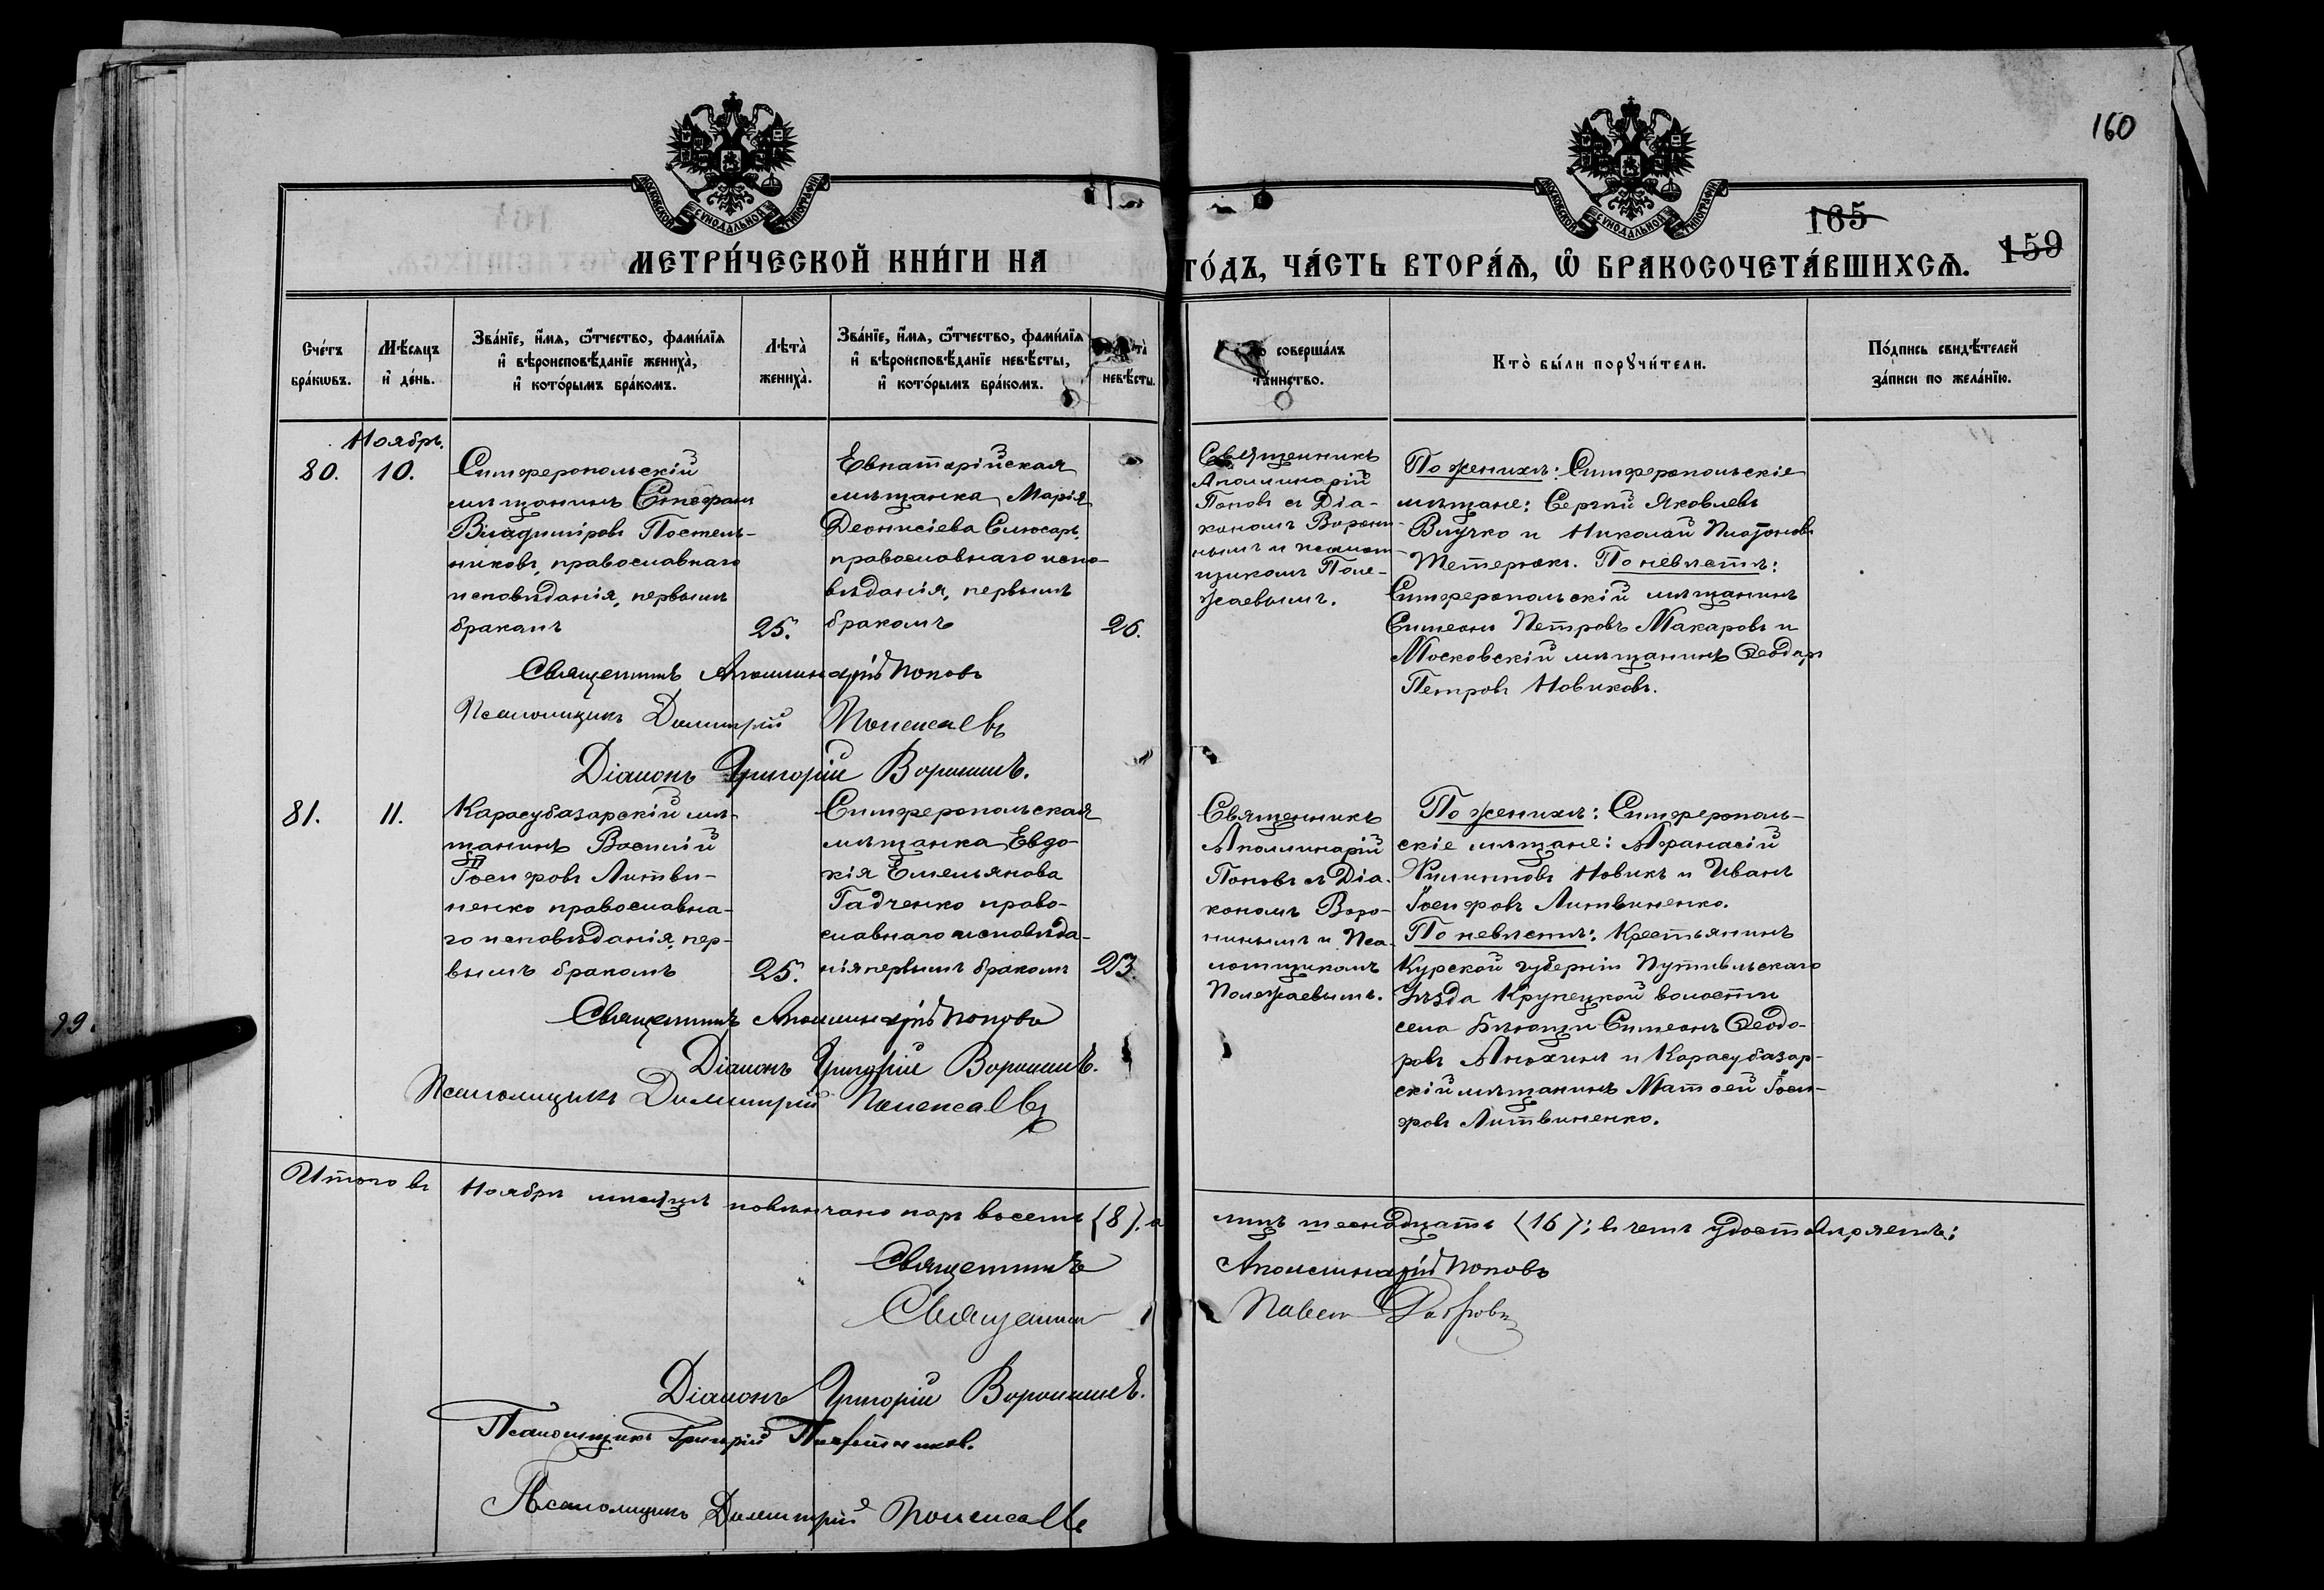 160
МОСКОВСКОЙ СУНОДАЛЬНОЙ ТИПОГРАФІИ
МОСКОВСКОЙ СУНОДАЛЬНОЙ ТИПОГРАФІИ
165
159
МЕТРИ́ЧЕСКОЙ КНИ́ГИ НА
ГО́ДЪ, ЧА́СТЬ ВТОРА́Ѧ, Ѽ БРАКОСОЧЕТА́ВШИХСѦ.
Сче́тъ
бра́кѡвъ.
Мѣ́сяцъ
и҆ де́нь.
Зва́нїе, и҆́мѧ, ѻ҆́тчество, фами́лїѧ
и҆ вѣроисповѣ́данїе жениха̀,
и҆ кото́рымъ бра́комъ.
Лѣта̀
жениха̀.
Зва́нїе, и҆́мѧ, ѻ҆́тчество, фами́лїѧ
и҆ вѣроисповѣ́данїе невѣ́сты,
и҆ кото́рымъ бра́комъ.
невѣ́сты.
соверша́лъ
та́инство.
Кто̀ бы́ли порꙋчи́тели.
По́дпись свидѣ́телей
за́писи по жела́нїю.
Ноябрь.
80.
10.
Симферопольскій
мѣщанинъ Стефанъ
Владиміровъ Постель-
никовъ, православнаго
исповѣданія, первымъ
бракомъ
25.
Евпаторійская
мѣщанка Марія
Деонисіева Слюсарь,
православнаго испо-
вѣданія, первымъ
бракомъ
26.
Священникъ
Аполлинарій
Поповъ съ Діа-
кономъ Ворони-
нымъ и псалом-
щикомъ Поле-
жаевымъ.
По женихѣ: Симферопольскіе
мѣщане: Сергѣй Яковлевъ
Влучко и Николай Платоновъ
Тетерюкъ. По невѣстѣ:
Симферопольскій мѣщанинъ
Симеонъ Петровъ Макаровъ и
Московскій мѣщанинъ Ѳеодоръ
Петровъ Новиковъ.
Священникъ Аполлинарій Поповъ
Псаломщикъ Димитрій Полежаевъ
Діаконъ Григорій Воронинъ.
81.
11.
Карасубазарскій мѣ-
щанинъ Василій
Іосифовъ Литви-
ненко православна-
го исповѣданія, пер-
вымъ бракомъ
25.
Симферопольская
мѣщанка Евдо-
кія Емельянова
Гадченко право-
славнаго исповѣда-
нія первымъ бракомъ
23.
Священникъ
Аполлинарій
Поповъ съ Діа-
кономъ Воро-
нинымъ и Пса-
ломщикомъ
Полежаевымъ.
По женихѣ: Симферополь-
скіе мѣщане: Аѳанасій
Филипповъ Новикъ и Иванъ
Іосифовъ Литвиненко.
По невѣстѣ: Крестьянинъ
Курской губерніи Путивльскаго
уѣзда Крупецкой волости
села Симеонъ Ѳеодо-
ровъ Анохинъ и Карасубазар-
скій мѣщанинъ Матѳей Іоси-
фовъ Литвиненко.
Священникъ Аполлинарій Поповъ
Діаконъ Григорій Воронинъ.
Псаломщикъ Димитрій Полежаевъ
29.
Итого въ Ноябрѣ мѣсяцѣ повѣнчано паръ восемь (8), а лицъ шеснадцать (16); въ чемъ удостовѣряемъ:
Священникъ Аполлинарій Поповъ
Священникъ Павелъ
Діаконъ Григорій Воронинъ.
Псаломщикъ Григорій
Псаломщикъ Димитрій Полежаевъ